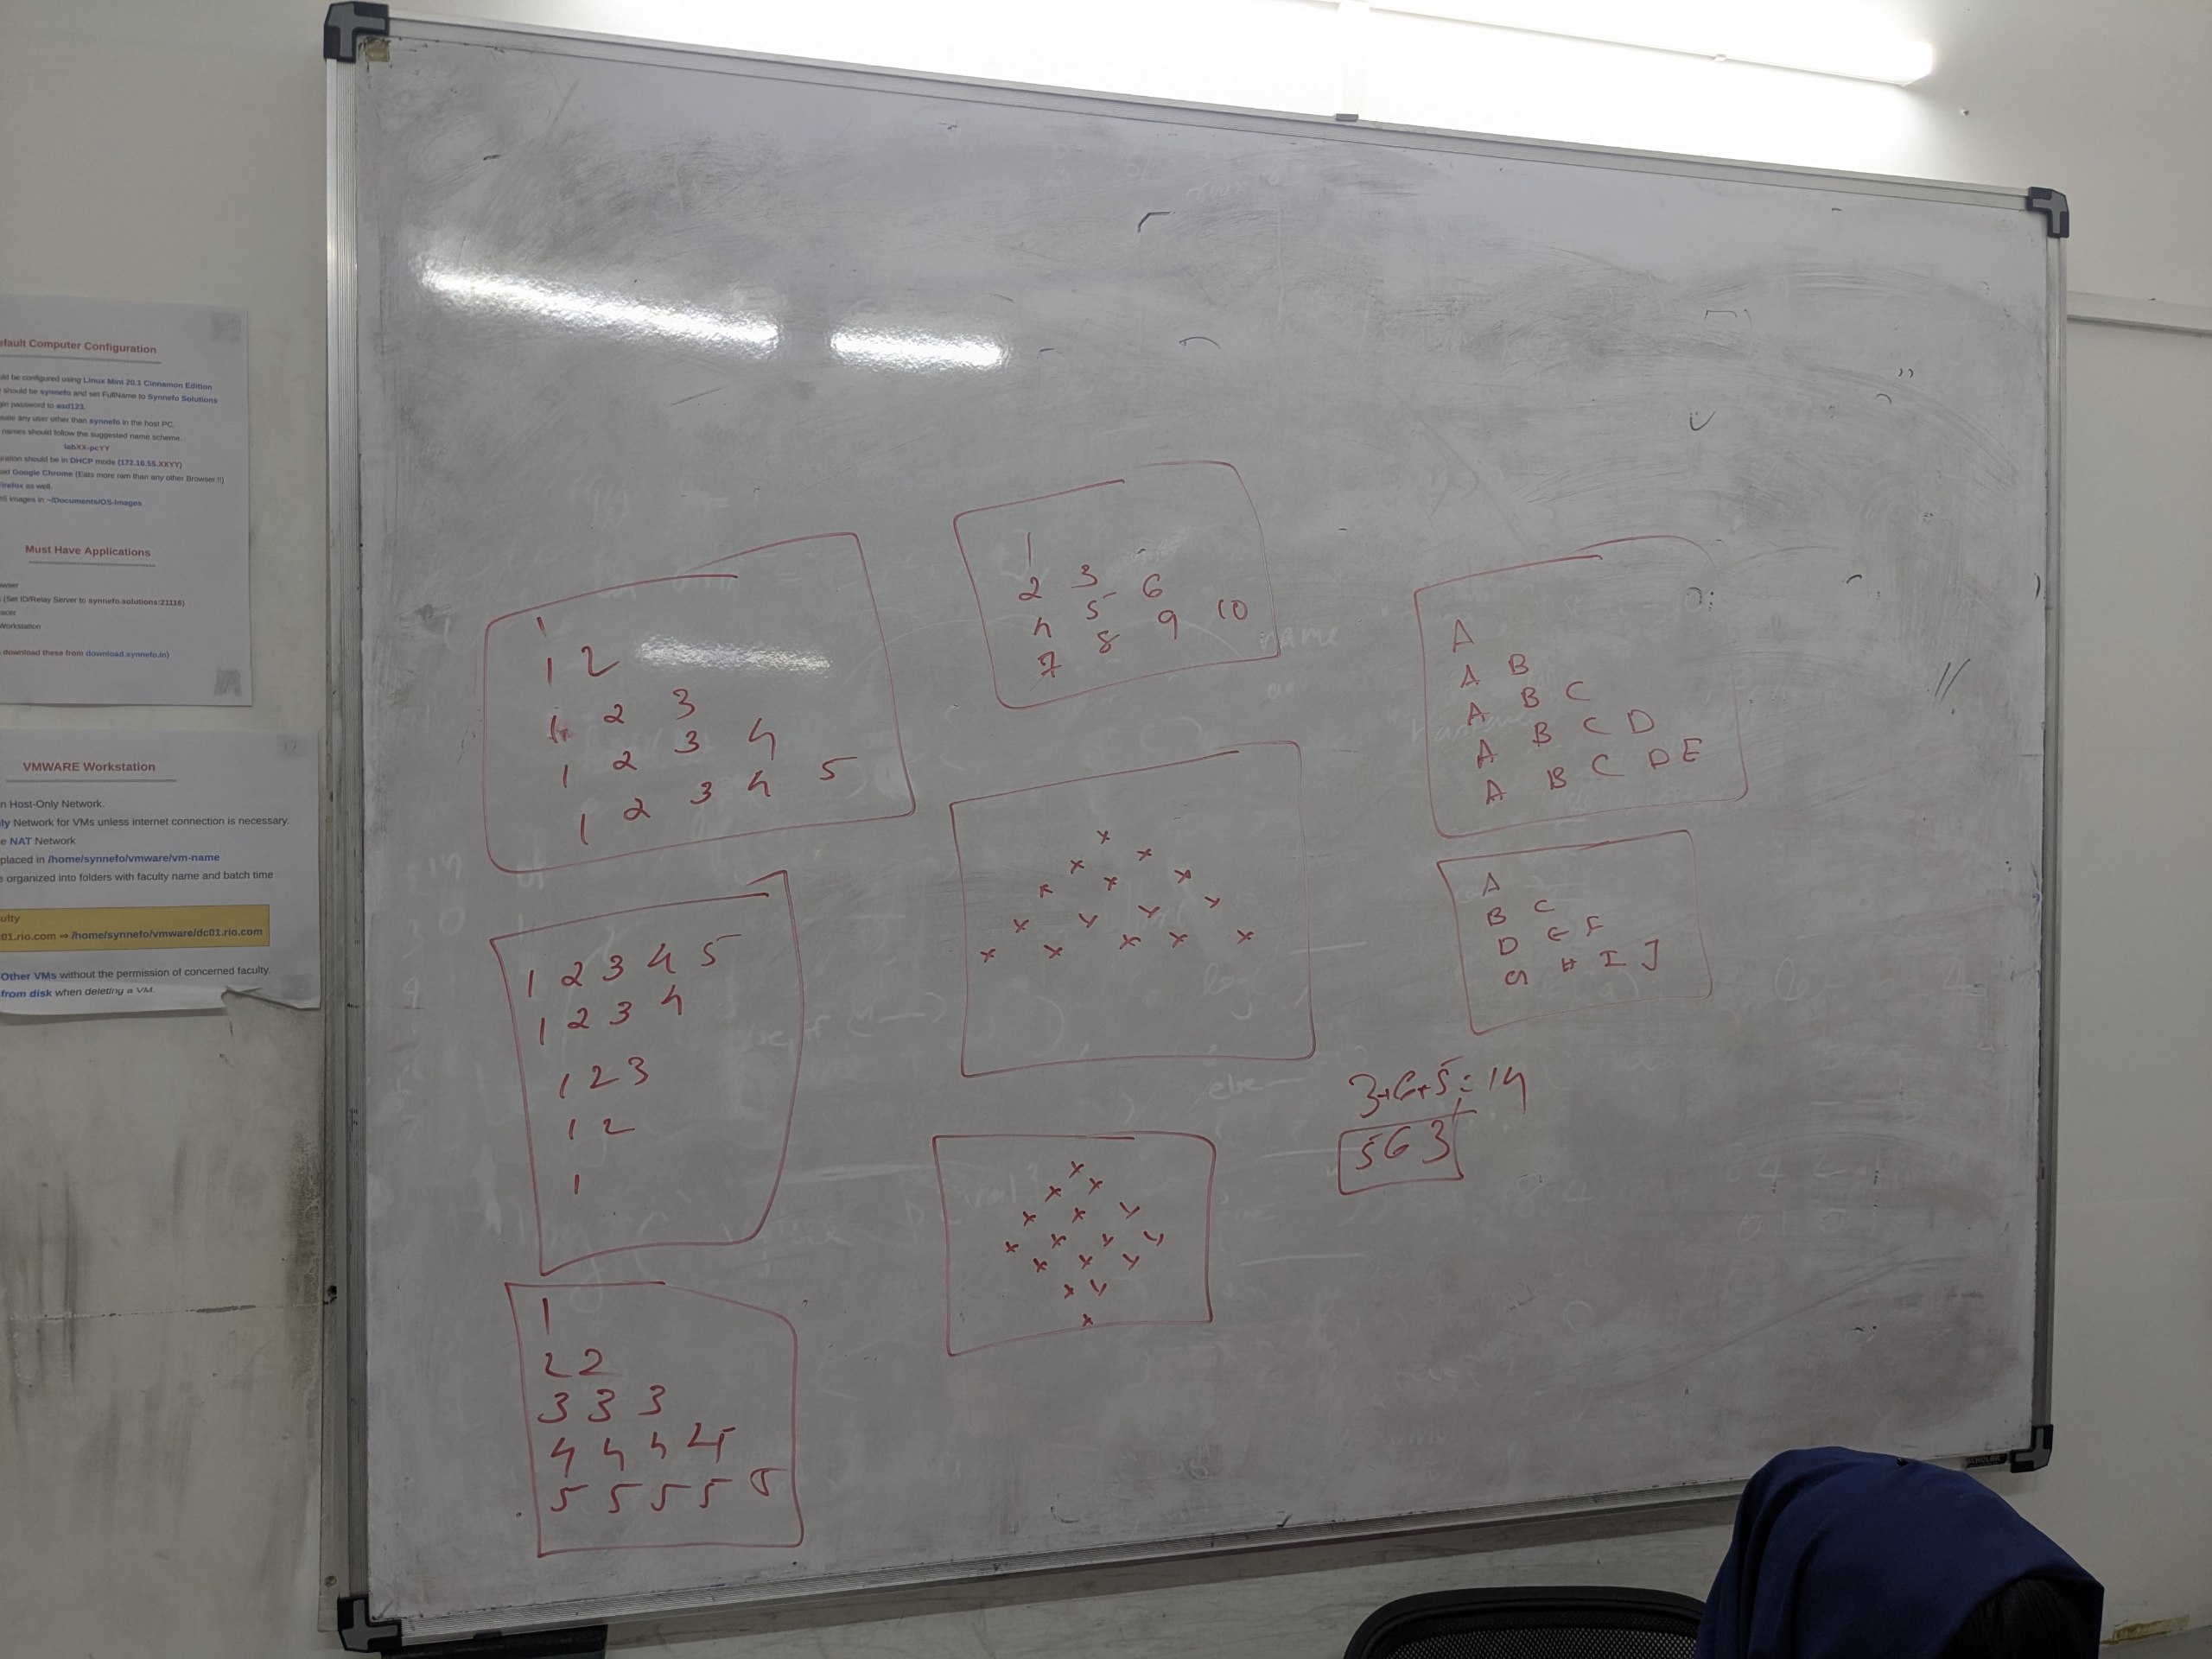 efault Computer Configuration
uld be configured using Linux Mint 20.1 Cinnamon Edition
should be synnefo and set FullName to Synnefo Solutions
gin password to asd123.
eate any user other than synnefo in the host PC.
names should follow the suggested name scheme.
labXX-pcYY
uration should be in DHCP mode (172.16.55.XXYY)
oid Google Chrome (Eats more ram than any other Browser.!!)
Firefox as well.
OS images in ~/Documents/OS-Images
Must Have Applications
owser
(Set ID/Relay Server to synnefo.solutions:21116)
acer
Workstation
download these from download.synnefo.in)
VMWARE Workstation
n Host-Only Network.
ly Network for VMs unless internet connection is necessary.
e NAT Network
placed in /home/synnefo/vmware/vm-name
e organized into folders with faculty name and batch time
ulty
01.rio.com → /home/synnefo/vmware/dc01.rio.com
Other VMs without the permission of concerned faculty.
from disk when deleting a VM.
1
1 2
1 2 3
1 2 3 4
1 2 3 4 5
1 2 3 4 5
1 2 3 4
1 2 3
1 2
1
1
2 2
3 3 3
4 4 4 4
5 5 5 5 5
1
2 3
4 5 6
7 8 9 10
x
x x
x x x
x x x x
x x x x x
x
x x
x x x
x x x x
x x x
x x
x
A
A B
A B C
A B C D
A B C D E
A
B C
D E F
G H I J
3+6+5=14
563
name
else